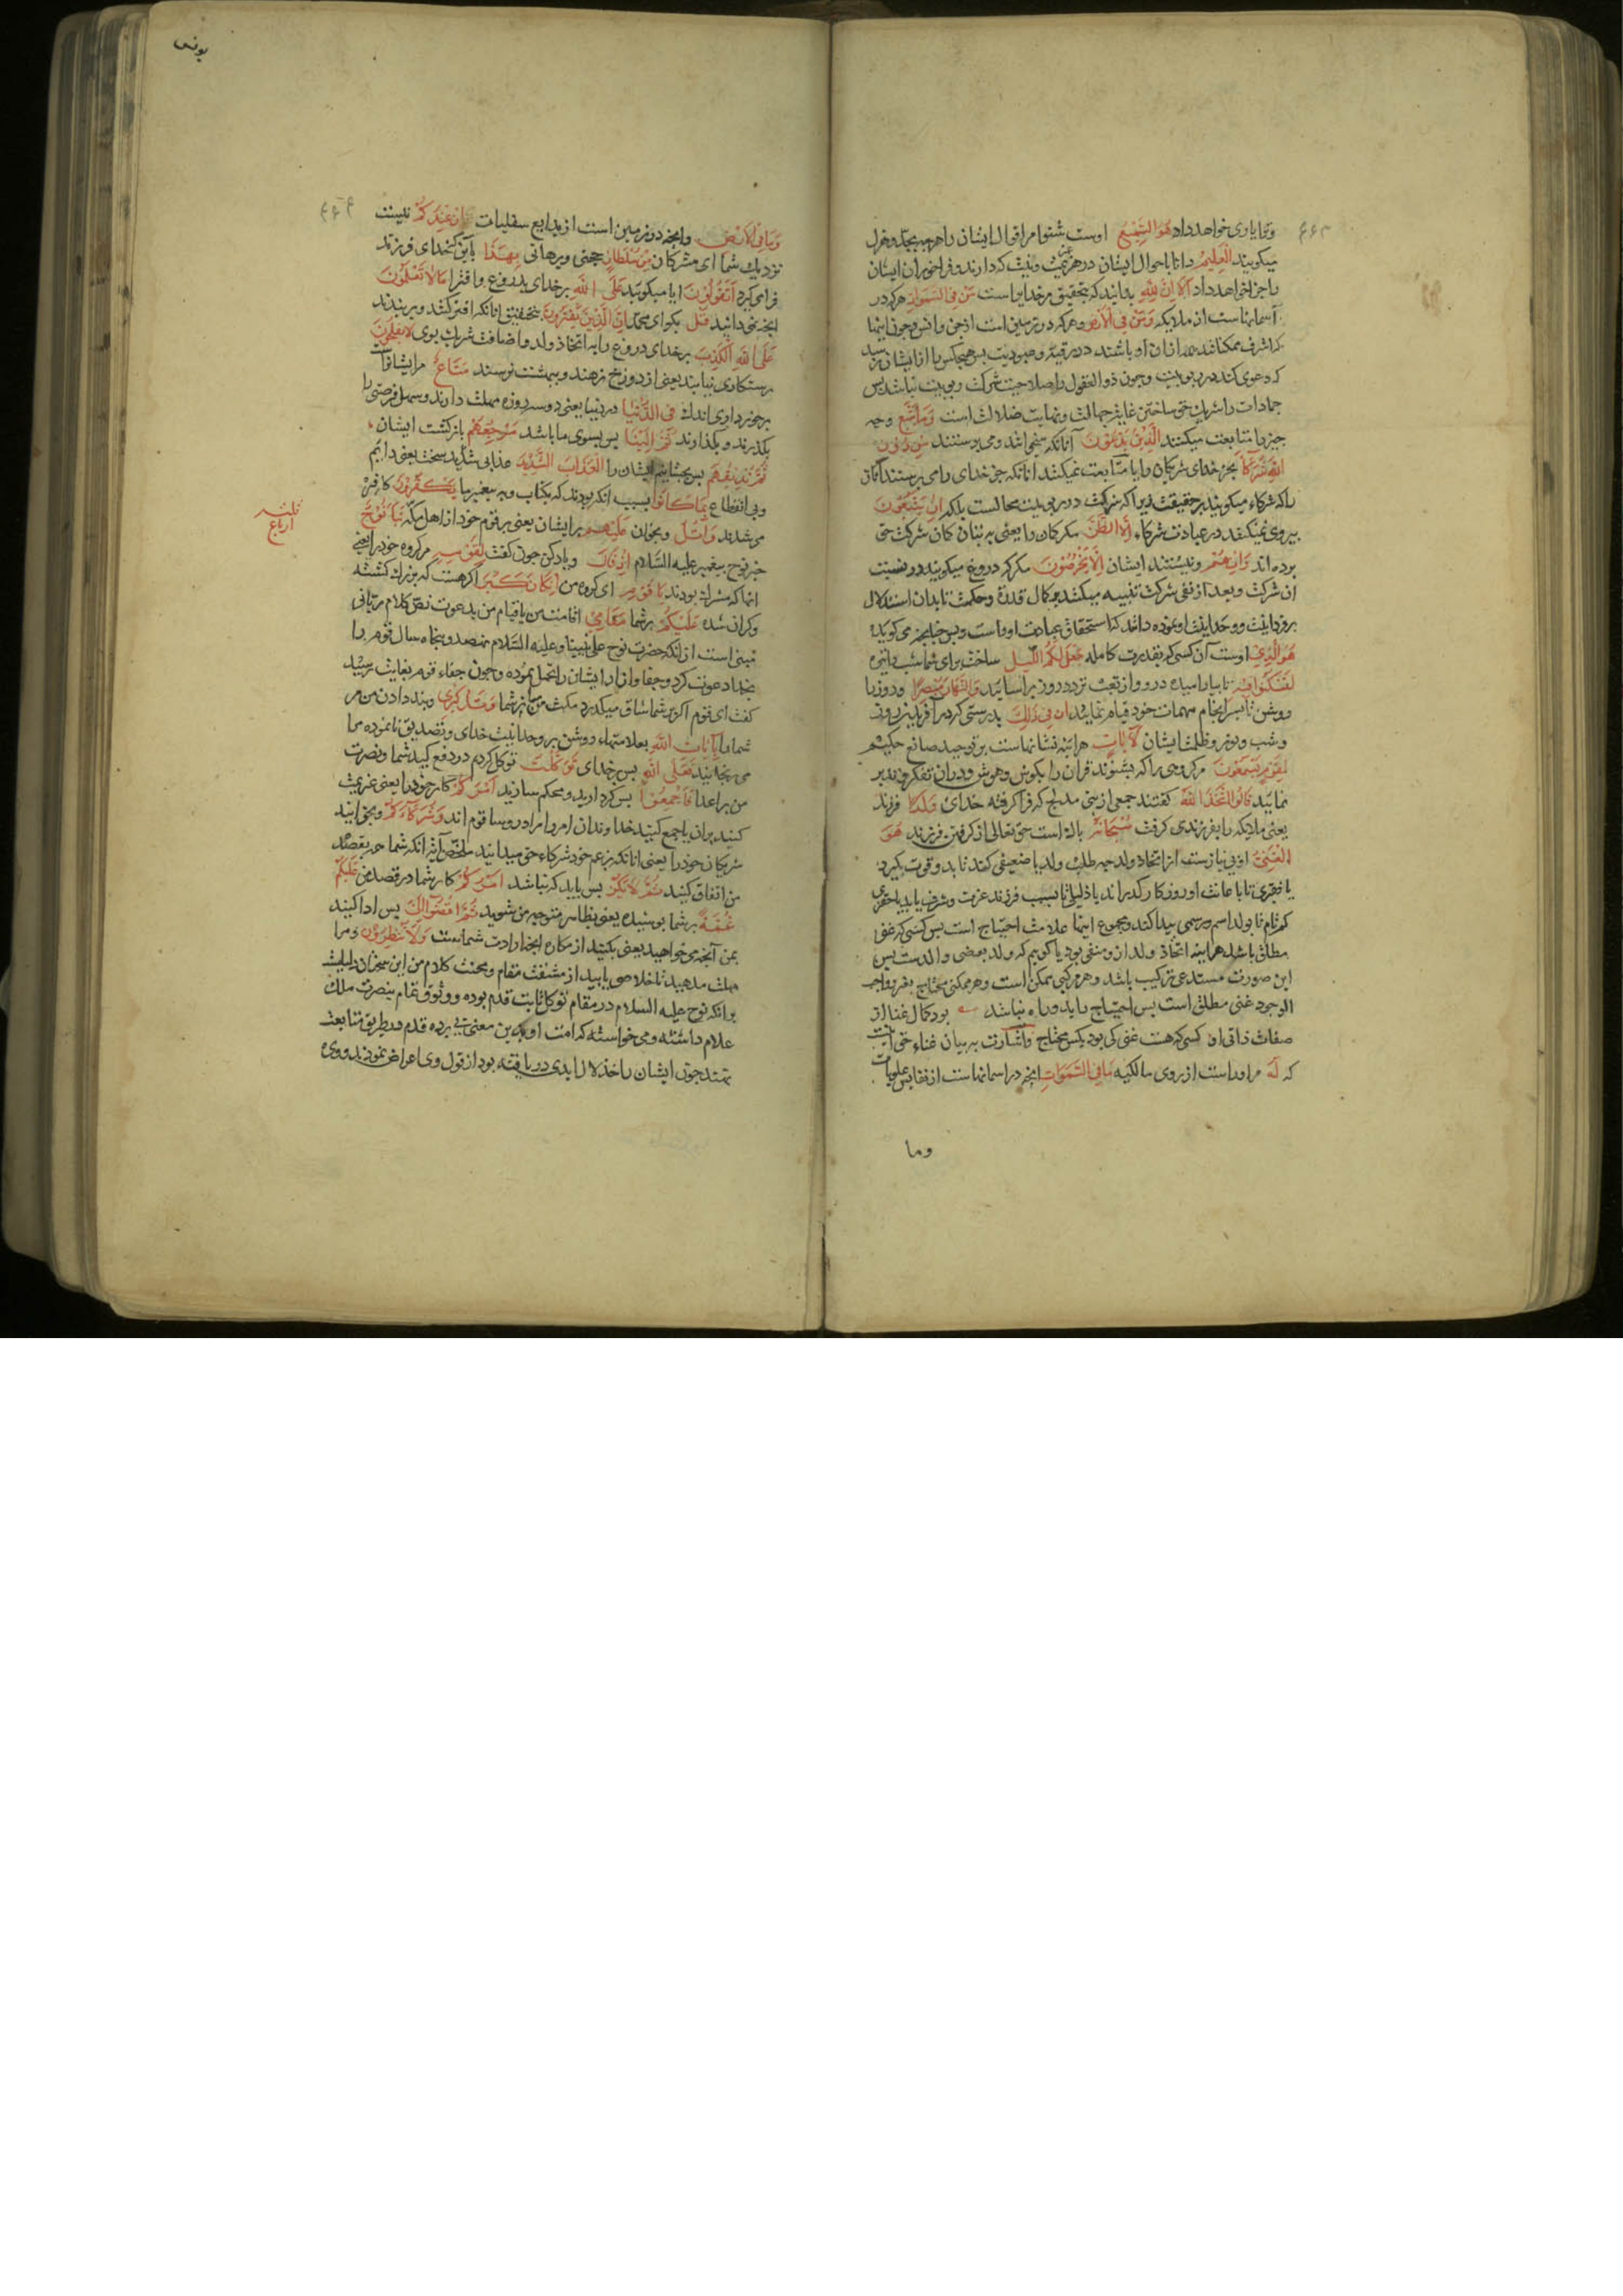 وترا یاری خواهد داد هُوَ السَّمِیعُ اوست شنوا مر اقوال ایشان را
میکویند الْعَلِیمُ دانا باحوال ایشان در هر نیت که دارند و فراخور آن ایشان
را جزا خواهد داد اَلَا اِنَّ لِلّٰهِ بدانید که بتحقیق مر خدایراست مَنْ فِی السَّمٰوَاتِ هرکه در
آسمانهاست از ملایکه وَمَنْ فِی الْاَرْضِ و هرکه در زمین است از جن و انس و چون اینها
که اشرف ممکناتند ازان او باشند در رقیت و عبودیت پس هیچکس را از ایشان نرسد
که دعوی کند در ربوبیت و چون ذوالعقول را صلاحیت شرکت ربوبیت نباشد پس
جمادات را شریک حق ساختن غایت جهالت و نهایت ضلالت است وَمَا یَتَّبِعُ و چه
چیز را متابعت میکنند الَّذِینَ یَدْعُونَ آنانکه میخوانند و می پرستند مِنْ دُونِ
اللّٰهِ شُرَکَآءَ بجز خدای شریکان را یا متابعت نمیکنند آنانکه جز خدای را می پرستند آنان
را که شرکاء میکویند بر حقیقت زیرا که شرکت در ربوبیت محالست بلکه اِنْ یَتَّبِعُونَ
پیروی نمیکنند در عبادت شرکاء اِلَّا الظَّنَّ مکر کمان را یعنی به کمان شرکت حق
برده اند وَاِنْ هُمْ و نیستند ایشان اِلَّا یَخْرُصُونَ مکر که دروغ میکویند در نسبت
آن شرکت و بعد از نفی شرکت تنبیه میکند بر کمال قدرت و حکمت تا بدان استدلال
بر وحدانیت او نموده دانند که استحقاق عبادت او راست و بس میکوید که
هُوَ الَّذِی اوست آن کسی که بقدرت کامله جَعَلَ لَکُمُ الَّیْلَ ساخت برای شما شب را تیره
لِتَسْکُنُوا فِیهِ تا بیارامید درو و از تعب تردد روز برآسائید وَالنَّهَارَ مُبْصِرًا و روز را
روشن تا بسرانجام مهمات خود قیام نمائید اِنَّ فِی ذٰلِکَ بدرستی که در آفریدن روز
و شب و نور و ظلمت ایشان لَاٰیَاتٍ هر آینه نشانهاست بر توحید صانع حکیم
لِقَوْمٍ یَسْمَعُونَ مر کروهی را که بشنوند قرآن را بکوش هوش و در آن تفکر و تدبر
نمایند قَالُوا اتَّخَذَ اللّٰهُ کفتند جمعی از بنی مدلج که فرا کرفته خدای وَلَدًا فرزند
یعنی ملایکه را بفرزندی کرفت سُبْحَانَهُ پاکست حق تعالی از کرفتن فرزند هُوَ
الْغَنِیُّ اوبی نیازست از اتخاذ ولد چه طلب ولد یا ضعیفی کند تا بدو قوت کیرد
یا فقیری تا باعانت او روزکار کذراند یا ذلیلی تا بسبب فرزند عزت و شرف یابد یا حقیری
کم نام تا بولد اسم و رسمی پیدا کند و مجموع اینها علامت احتیاج است پس کسی که غنی
مطلق باشد هر آینه اتخاذ ولد از و منفی بود یا کوییم که ولد بعضی والدست پس
این صورت مستدعی ترکیب باشد و هر مرکبی ممکن است و هر ممکنی محتاج بغیر و واجب
الوجود غنی مطلق است پس احتیاج را بدو راه نباشد بود کمال غنا از
صفات ذاتی او کسی که هست غنی کی بود بکس محتاج و اشارت به بیان غناء حق است
که لَهُ مر اوراست از روی مالکیه مَا فِی السَّمٰوَاتِ انچه در اسمانهاست از نفایس علویات
وما
یونس
وَمَا فِی الْاَرْضِ وانچه در زمین است از بدایع سفلیات اِنْ عِنْدَکُمْ نیست
نزدیک شما ای مشرکان مِنْ سُلْطَانٍ حجتی و برهانی بِهٰذَا باین که خدای فرزند
فرامی کیرد اَتَقُولُونَ ایا میکویید عَلَی اللّٰهِ بر خدای بدروغ و افترا مَا لَا تَعْلَمُونَ
انچه نمی دانید قُلْ بکو ای محمد اِنَّ الَّذِینَ یَفْتَرُونَ بتحقیق آنانکه افترا کنند و بربندند
عَلَی اللّٰهِ الْکَذِبَ بر خدای دروغ را به اتخاذ ولد و اضافت شریک بوی لَا یُفْلِحُونَ
رستکاری نیابند یعنی از دوزخ نرهند و ببهشت نرسند مَتَاعٌ مر ایشانراست
برخورداری اندک فِی الدُّنْیَا در دنیا یعنی دو سه روزه مهلت دارند و سهل فرصتی را
بکذرند و بکذارند ثُمَّ اِلَیْنَا پس بسوی ما باشد مَرْجِعُهُمْ بازکشت ایشان
ثُمَّ نُذِیقُهُمْ پس بچشانیم ایشان را الْعَذَابَ الشَّدِیدَ عذابی شدید سخت یعنی دایم
وبی انقطاع بِمَا کَانُوا بسبب انکه بودند که بکتاب و به پیغمبر ما یَکْفُرُونَ کافر
می شدند وَاتْلُ و بخوان عَلَیْهِمْ بر ایشان یعنی بر قوم خود از اهل مکه نَبَاَ نُوحٍ
خبر نوح پیغمبر علیه السلام اِذْ قَالَ و یاد کن چون کفت لِقَوْمِهِ مر کروه خود را یعنی
انها که مشرک بودند یَا قَوْمِ ای کروه من اِنْ کَانَ کَبُرَ اکر هست که بزرک کشته
وکران شده عَلَیْکُمْ بر شما مَقَامِی اقامت من یا قیام من بدعوت نص کلام ربانی
مبنی است از انکه حضرت نوح علی نبینا و علیه السلام نهصد و پنجاه سال قوم را
بخدا دعوت کرد و جفا و آزار ایشان را تحمل نموده و چون جفاء قوم بغایت رسید
کفت ای قوم اکر بر شما شاق میکذرد مکث من میان شما وَتَذْکِیرِی و پند دادن من مر
شما را بِاٰیَاتِ اللّٰهِ بعلامتهاء روشن بر وحدانیت خدای و تصدیق نا نموده مرا
می رنجانید فَعَلَی اللّٰهِ پس بر خدای تَوَکَّلْتُ توکل کردم در دفع کید شما و نصرت
من بر اعدا فَاَجْمِعُوا پس کرد ارید و محکم سازید اَمْرَکُمْ کار خود را یعنی عزیمت
کنید بران یا جمع کنید خداوندان امر را مراد رؤسا قوم اند وَشُرَکَآءَکُمْ و بخوانید
شریکان خود را یعنی آنانکه بزعم خود شرکاء حق میدانید ملخص آیه آنکه شما همه بقصد
من اتفاق کنید ثُمَّ لَا یَکُنْ پس باید که نباشد اَمْرُکُمْ کار شما در قصد من عَلَیْکُمْ
غُمَّةً بر شما پوشیده یعنی بظاهر متوجه من شوید ثُمَّ اقْضُوا اِلَیَّ پس ادا کنید
بمن آنچه می خواهید یعنی بکنید از مکاره انچه ارادت شماست وَلَا تُنْظِرُونِ و مرا
مهلت مدهید تا خلاصی یابید از مشقت مقام و محنت کلام من این سخنان دلیلست
بر انکه نوح علیه السلام در مقام توکل ثابت قدم بوده و وثوق تمام بنصرت ملک
علام داشته و می خواسته که امت او بدین معنی پی برده قدم در طریق متابعت
نهند چون ایشان را خذلان ابدی دریافته بود از قول وی اعراض نمودند و وی
ثلثه
ارباع